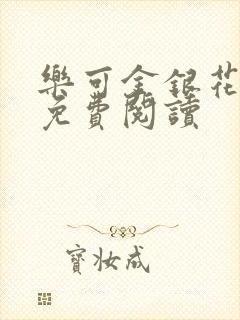 樂可金銀花
免費閱讀
寶妝成